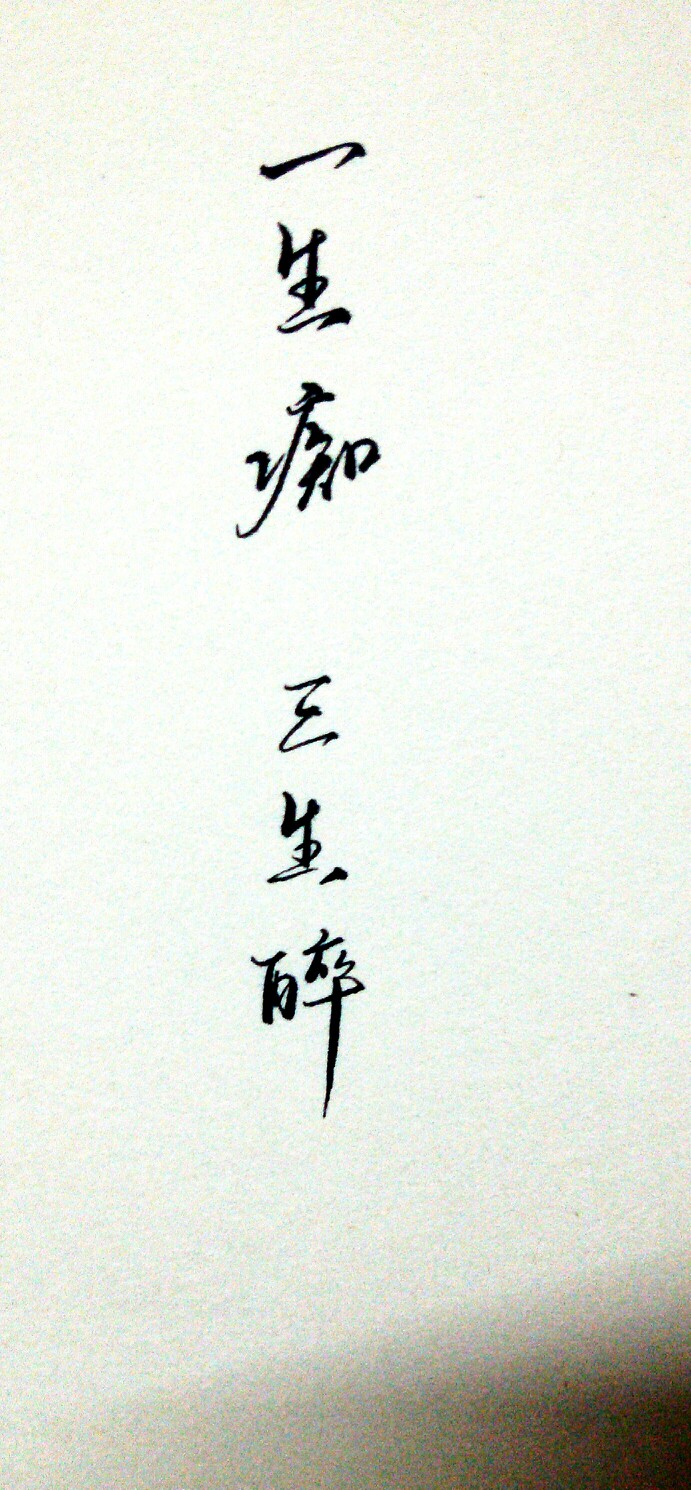 一生痴 三生醉